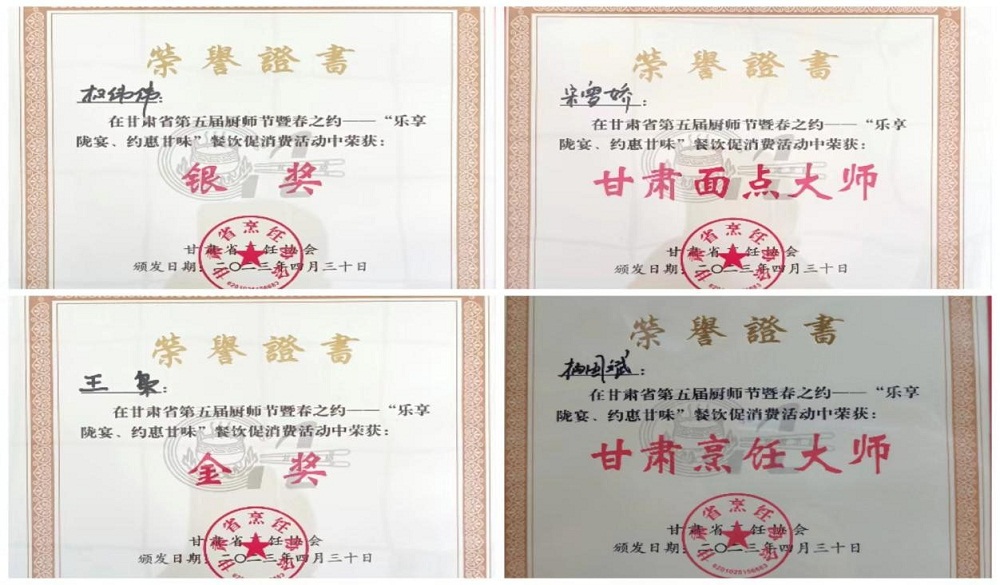 榮譽證書
在甘肃省第五届厨师节暨春之约——“乐享
陇宴、约惠甘味”餐饮促消费活动中荣获：
银奖
甘肃省烹饪协会
颁发日期：二〇二三年四月三十日
榮譽證書
宋雪娇：
在甘肃省第五届厨师节暨春之约——“乐享
陇宴、约惠甘味”餐饮促消费活动中荣获：
甘肃面点大师
甘肃省烹饪协会
颁发日期：二〇二三年四月三十日
榮譽證書
王枭：
在甘肃省第五届厨师节暨春之约——“乐享
陇宴、约惠甘味”餐饮促消费活动中荣获：
金奖
甘肃省烹饪协会
颁发日期：二〇二三年四月三十日
榮譽證書
国斌：
在甘肃省第五届厨师节暨春之约——“乐享
陇宴、约惠甘味”餐饮促消费活动中荣获：
甘肃烹饪大师
甘肃省烹饪协会
颁发日期：二〇二三年四月三十日